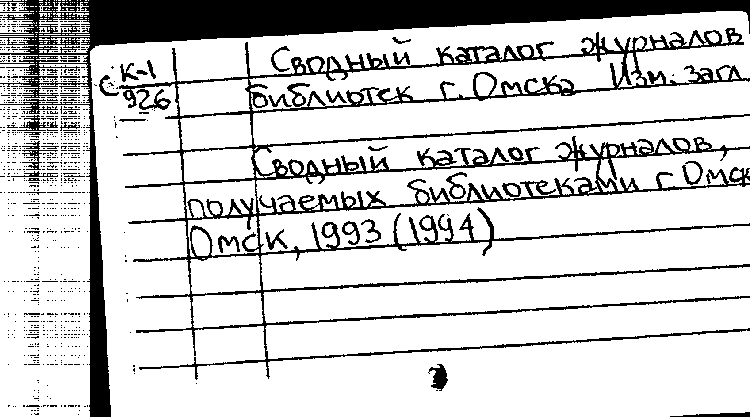 Сводный каталог журналов
с К-1
926
библиотек г. Омска Изм. загл.
Сводный каталог журналов,
получаемых библиотеками г. Омск
Омск, 1993 (1994)